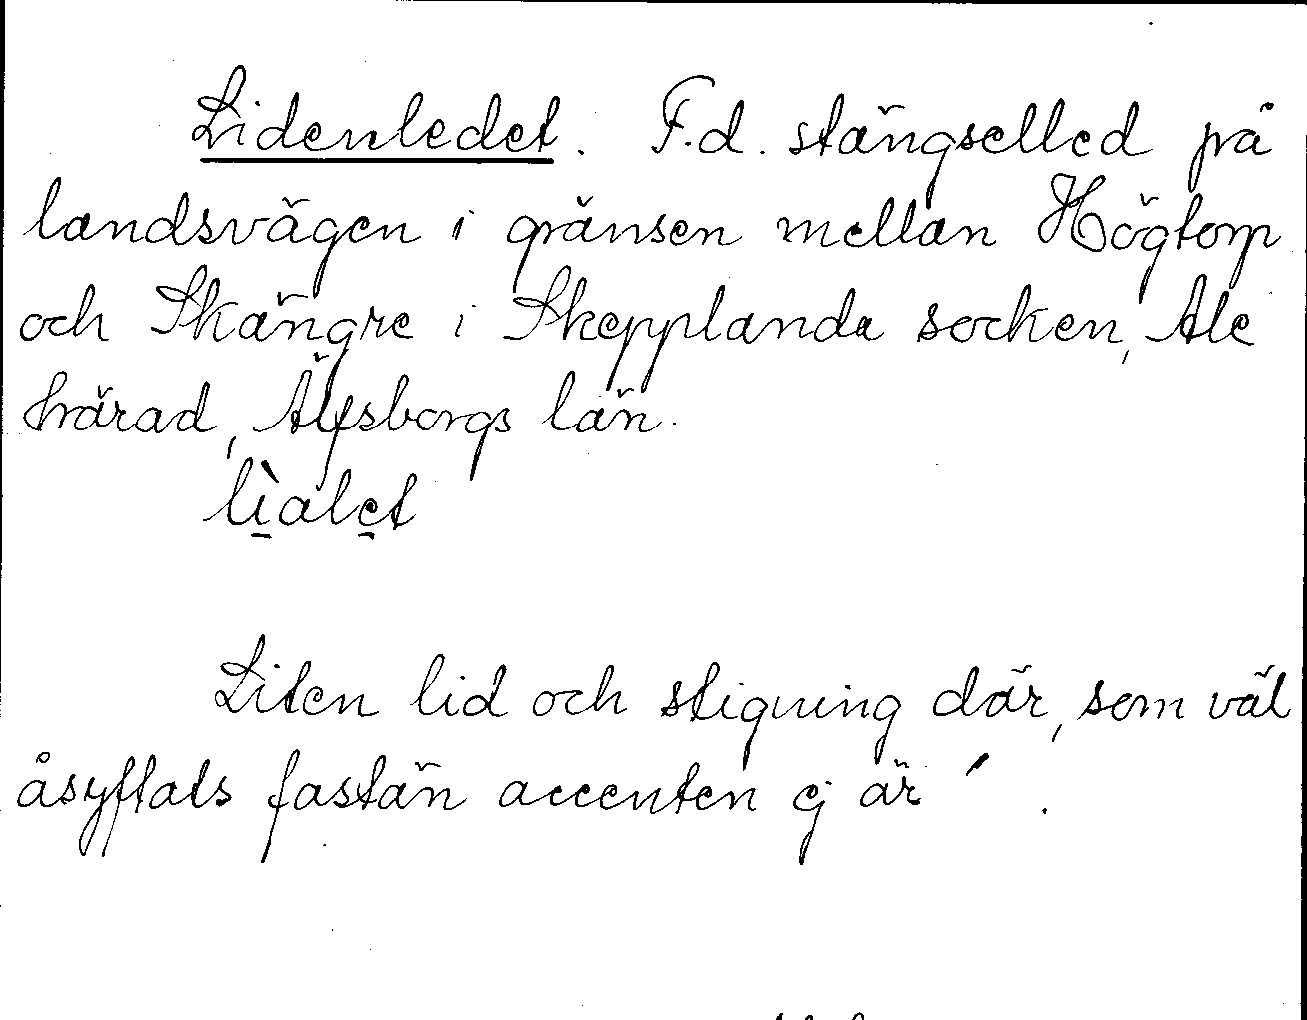 Lidenledet. F.d. stängselled på
landsvägen i gränsen mellan Högtorp
och Skängre i Skepplanda socken, Ale
härad, Älfsborgs län.
lìalet
Liten lid och stigning där, som väl
åsyftats fastän accenten ej är ´.